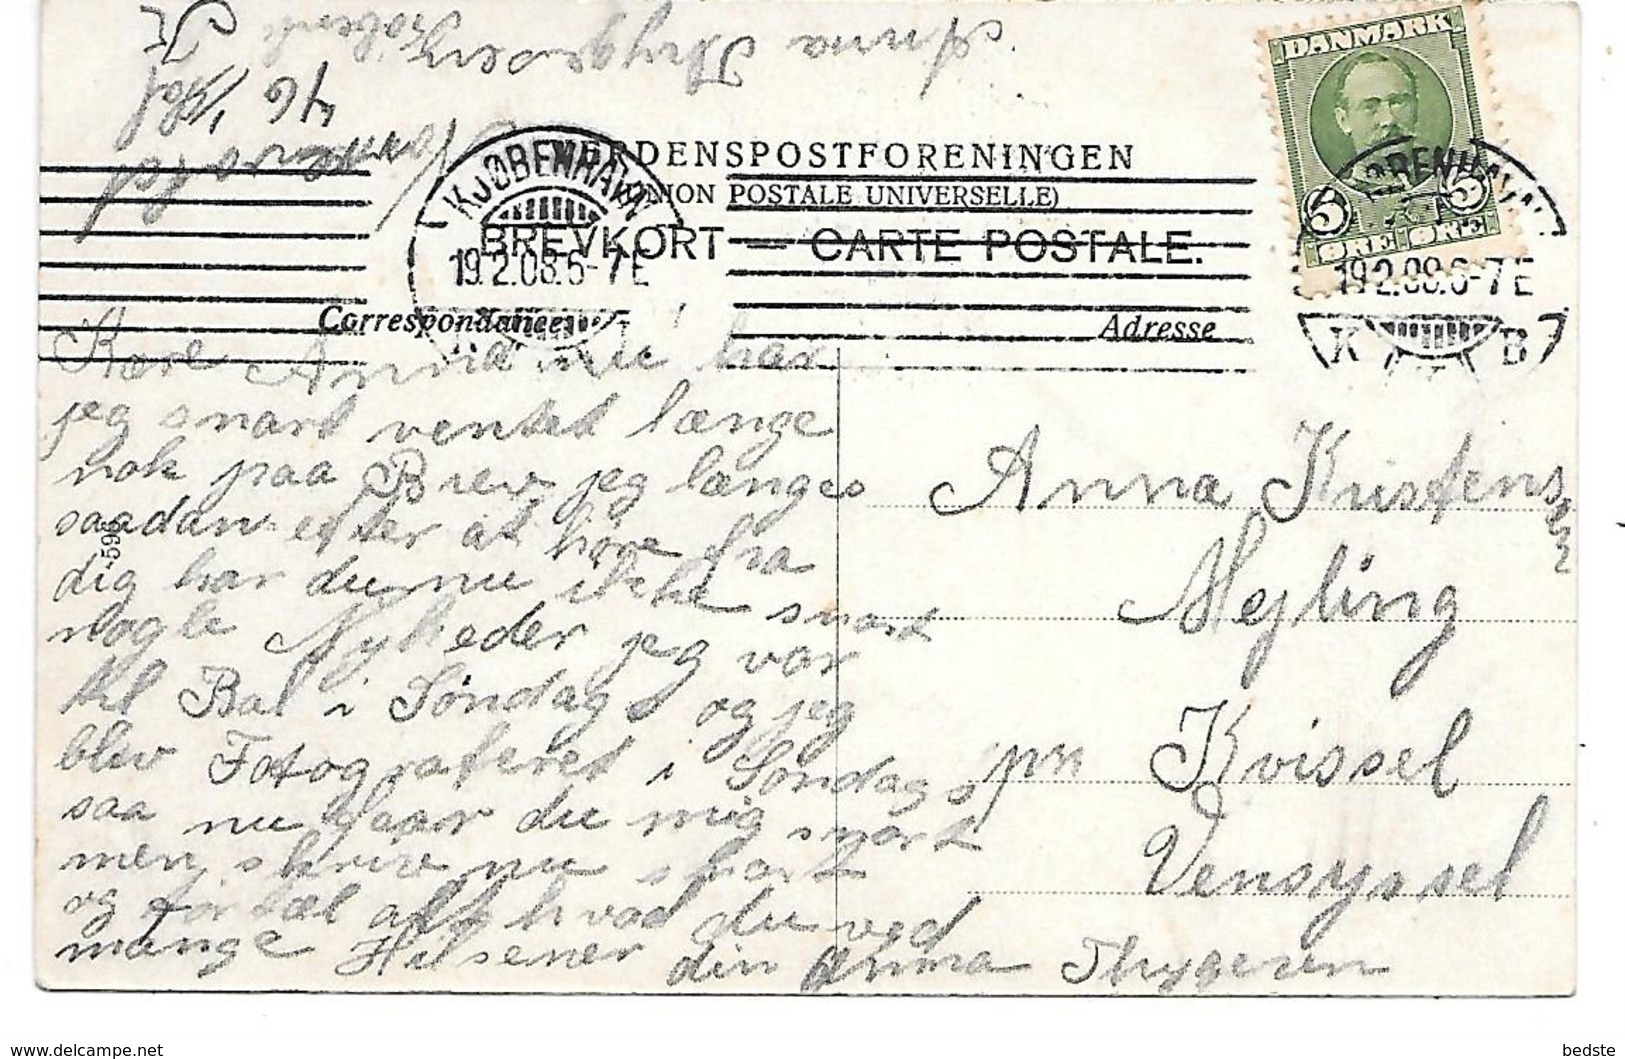 Anna Thygesen
46
VERDENSPOSTFORENINGEN
(UNION POSTALE UNIVERSELLE)
BREVKORT — CARTE POSTALE.
Correspondance
Adresse
DANMARK
5 5
ØRE ØRE
KJØBENHAVN
19.2.08.6-7E
KJØBENHAVN
19.2.08.6-7E
K B
Kære nu har
jeg snart ventet længe
nok paa Brev jeg længes
saadan efter at høre fra
dig har du nu ikke snart
nogle Nyheder jeg var
til Bal i Søndags og jeg
blev Fotograferet i Søndags
saa nu faar du mig snart
men skriv nu snart
og fortæl alt hvad du ved
mange Hilsener din Anna Thygesen
Anna Kristensen
Mejling
pr Kvissel
Vensyssel
delcampe.net
bedste